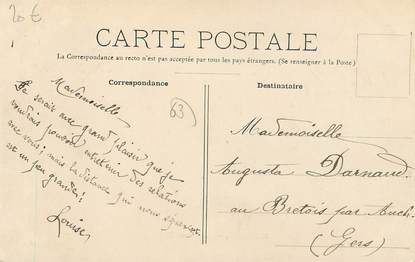 20 €
CARTE POSTALE
La Correspondance au recto n'est pas acceptée par tous les pays étrangers. (Se renseigner à la Poste)
Correspondance
Destinataire
63
Mademoiselle
Ce serait avec grand plaisir que je
voudrais pouvoir entretenir des relations
avec vous; mais la distance qui nous sépare
est un peu grande!
Louise
Mademoiselle
Augusta Darnaud
au Bretois par Auch.
(Gers)